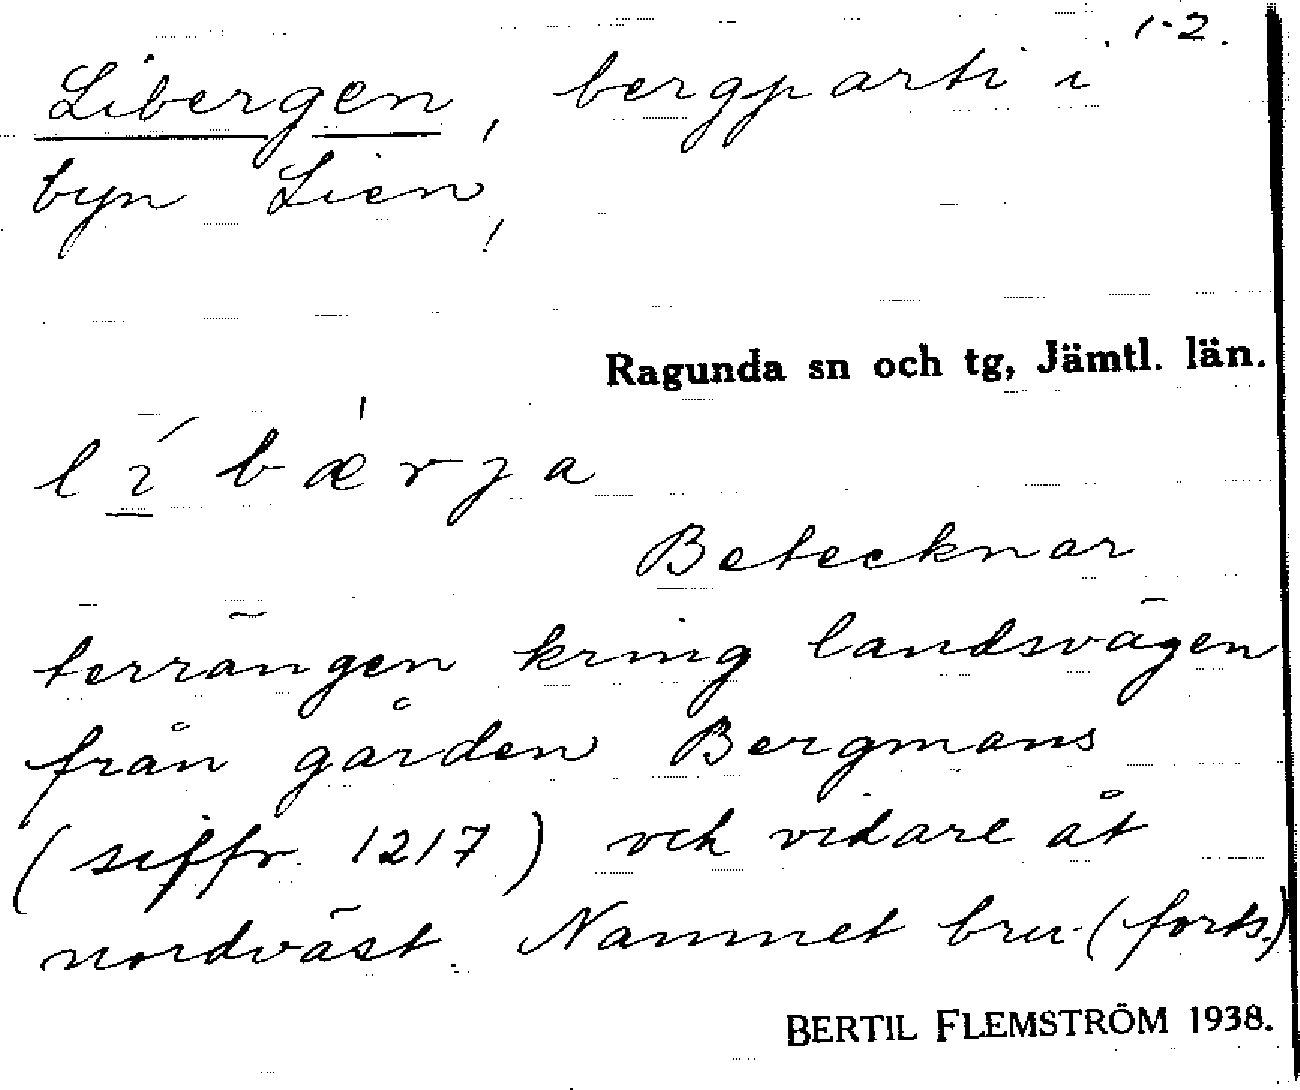 1-2.
Libergen, bergparti i
byn Lien,
Ragunda sn och tg, Jämtl. län.
lí bæ'rja
Betecknar
terrängen kring landsvägen
från gården Bergmans
(siffr. 1217) och vidare åt
nordväst. Namnet bru- (forts.)
BERTIL FLEMSTRÖM 1938.